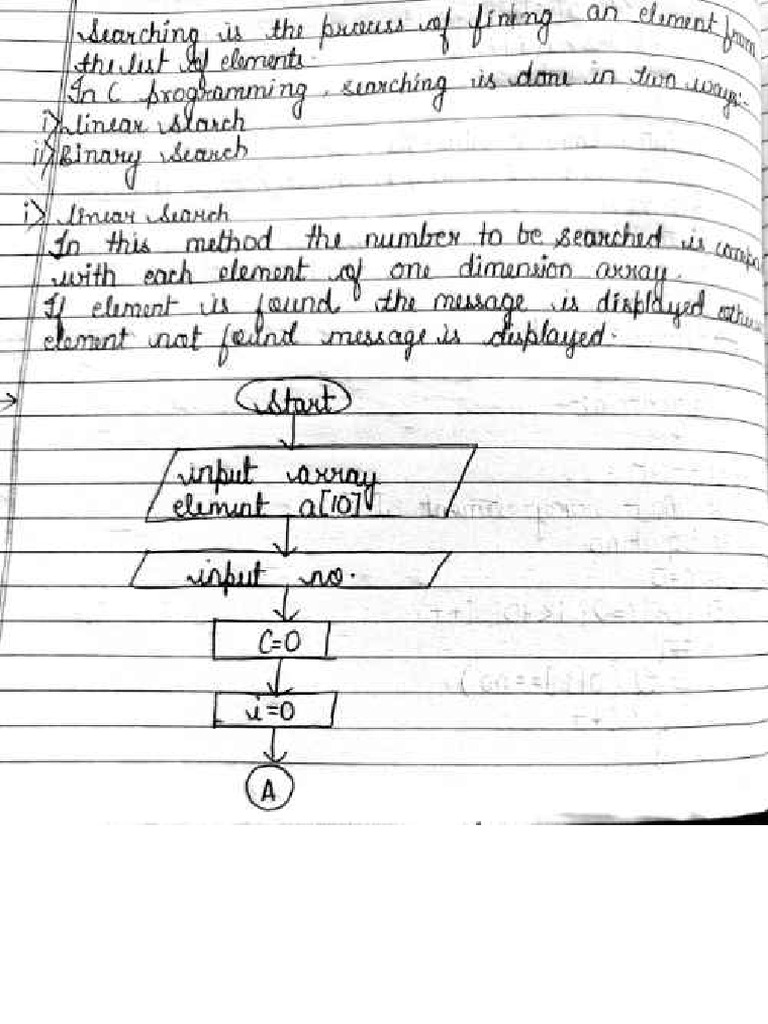 Searching is the process of fining an element from
the list of elements.
In C programming, searching is done in two ways:
i) linear search
ii) Binary search
i) linear search
In this method the number to be searched is compa
with each element of one dimension array.
If element is found the message is displayed
element not found message is displayed.
start
input array
element a[10]
input no.
C=0
i=0
A